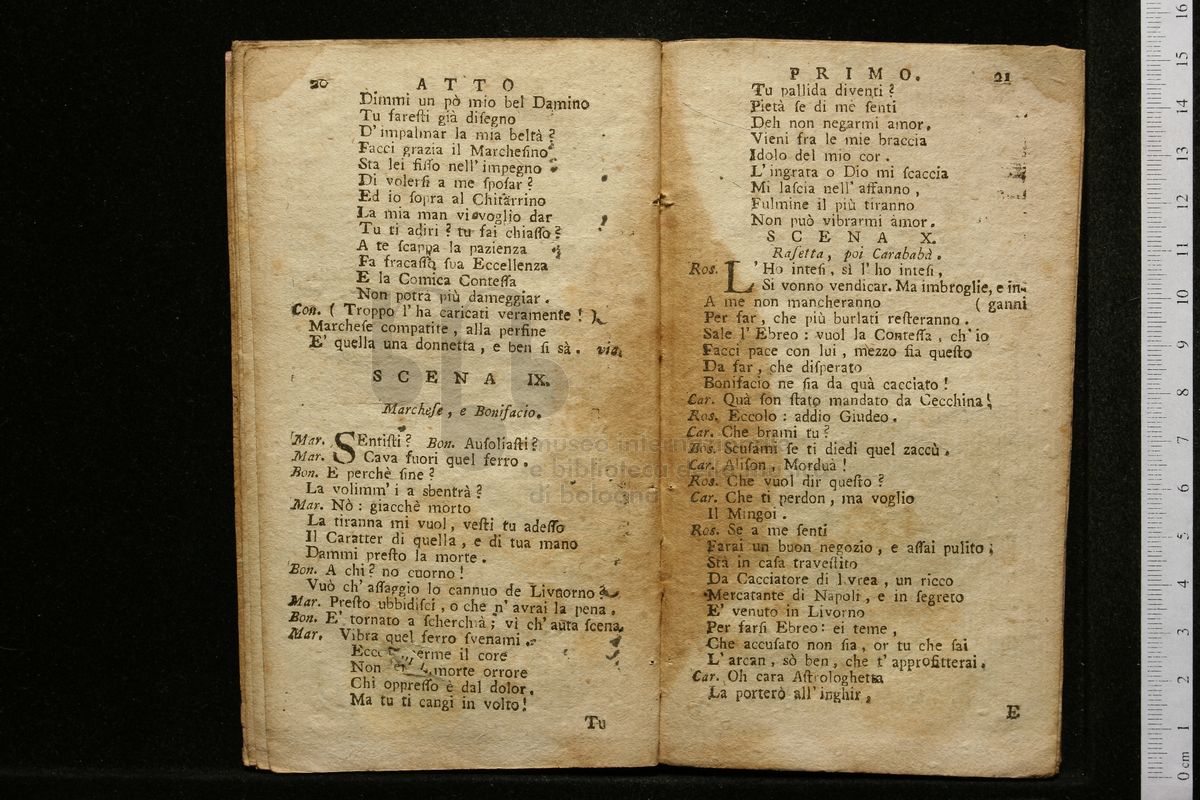 20 ATTO
Dimmi un pò mio bel Damino
Tu faresti già disegno
D' impalmar la mia beltà ?
Facci grazia il Marchesino
Sta lei fisso nell' impegno
Di volersi a me sposar ?
Ed io sopra al Chitarrino
La mia man vi voglio dar
Tu ti adiri ? tu fai chiasso ?
A te scappa la pazienza
Fa fracasso sua Eccellenza
E la Comica Contessa
Non potrà più dameggiar .
Con. ( Troppo l' ha caricati veramente ! )
Marchese compatite , alla perfine
E' quella una donnetta , e ben si sà . via.
SCENA IX.
Marchese , e Bonifacio.
Mar. SEntisti ? Bon. Ausoliasti ?
Mar. Cava fuori quel ferro .
Bon. E perchè fine ?
La volimm' i a sbentrà ?
Mar. Nò : giacchè morto
La tiranna mi vuol , vesti tu adesso
Il Caratter di quella , e di tua mano
Dammi presto la morte .
Bon. A chi ? no cuorno !
Vuò ch' assaggio lo cannuo de Livuorno ?
Mar. Presto ubbidisci , o che n' avrai la pena .
Bon. E' tornato a scherchià ; vi ch' auta scena.
Mar. Vibra quel ferro svenami .
il core
Non morte orrore
Chi oppresso è dal dolor .
Ma tu ti cangi in volto !
Tu
PRIMO. 21
Tu pallida diventi ?
Pietà se di me senti
Deh non negarmi amor .
Vieni fra le mie braccia
Idolo del mio cor .
L' ingrata o Dio mi scaccia
Mi lascia nell' affanno ,
Fulmine il più tiranno
Non può vibrarmi amor .
SCENA X.
Rosetta , poi Carababà .
Ros. L' Ho intesi , sì l' ho intesi ,
Si vonno vendicar. Ma imbroglie, e in-
A me non mancheranno ( ganni
Per far , che più burlati resteranno .
Sale l' Ebreo : vuol la Contessa , ch' io
Facci pace con lui , mezzo sia questo
Da far , che disperato
Bonifacio ne sia da quà cacciato !
Car. Quà son stato mandato da Cecchina !
Ros. Eccolo : addio Giudeo .
Car. Che brami tu ?
Ros. Scusami se ti diedi quel zaccù .
Car. Alison , Morduà !
Ros. Che vuol dir questo ?
Car. Che ti perdon , ma voglio
Il Mingoi .
Ros. Se a me senti
Farai un buon negozio , e assai pulito ;
Stà in casa travestito
Da Cacciatore di Ivrea , un ricco
Mercatante di Napoli , e in segreto
E' venuto in Livorno
Per farsi Ebreo : ei teme ,
Che accusato non sia , or tu che sai
L' arcan , sò ben , che t' approfitterai .
Car. Oh cara Astrologhetta
La porterò all' inghir ,
E
museo internazionale
e biblioteca della musica
di bologna
0 cm 1 2 3 4 5 6 7 8 9 10 11 12 13 14 15 16